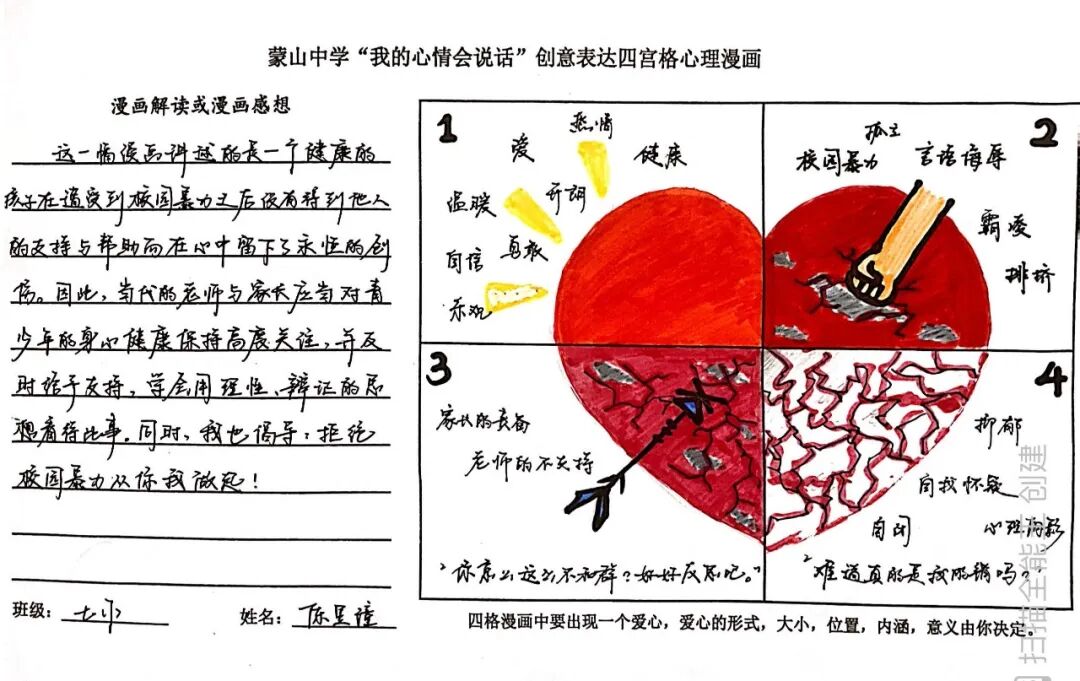 蒙山中学“我的心情会说话”创意表达四宫格心理漫画
漫画解读或漫画感想
这一幅漫画讲述的是一个健康的
孩子在遭受到校园暴力之后没有得到他人
的支持与帮助而在心中留下了永恒的创
伤。因此，当代的老师与家长应当对青
少年的身心健康保持高度关注，并及
时给予支持，学会用理性、辩证的思
想看待此事。同时，我也倡导：拒绝
校园暴力从你我做起！
班级：
姓名：陈昱瞳
1
热情
爱
健康
开朗
温暖
勇敢
自信
乐观
2
孤立
校园暴力
言语侮辱
霸凌
排挤
3
家长的责备
老师的不支持
“你怎么这么不和群？好好反思吧。”
4
抑郁
自我怀疑
自闭
心理阴影
“难道真的是我的错吗？”
四格漫画中要出现一个爱心，爱心的形式，大小，位置，内涵，意义由你决定。
扫描全能王 创建